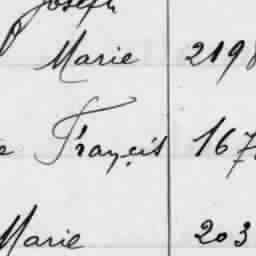 Joseph
Marie 219
e François 167
Marie 203